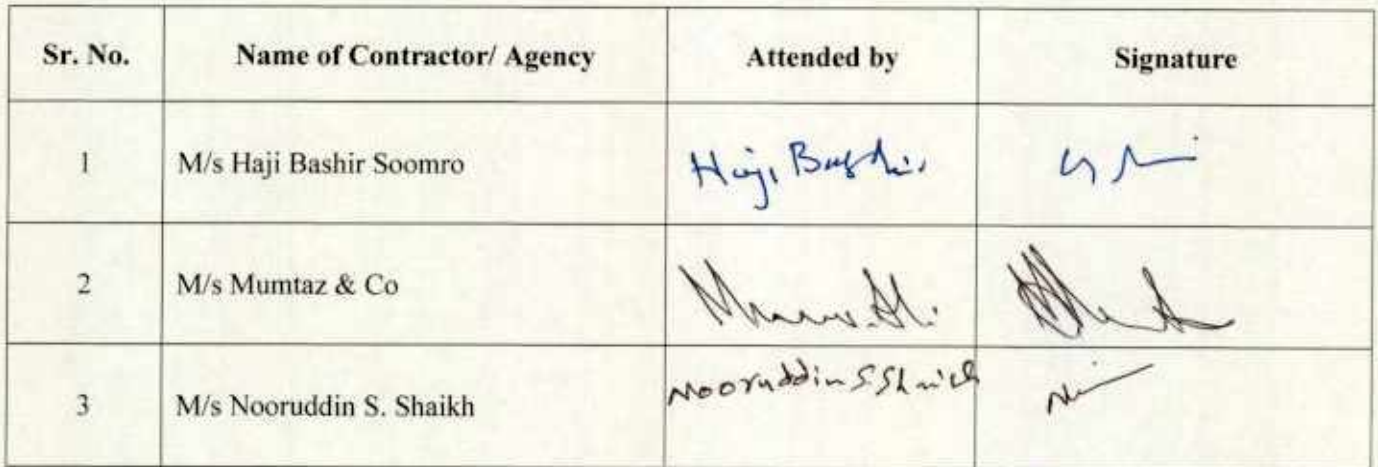 Sr. No. Name of Contractor/ Agency Attended by Signature
1 M/s Haji Bashir Soomro Haji Bashir
2 M/s Mumtaz & Co
3 M/s Nooruddin S. Shaikh Nooruddin S Shaikh